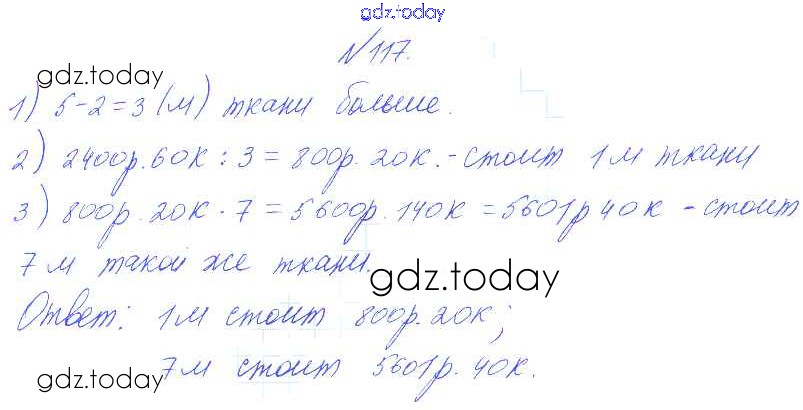 gdz.today
№117.
gdz.today
1) 5-2=3 (м) ткани больше.
2) 2400р.60к : 3 = 800р. 20к. - стоит 1м ткани
3) 800р. 20к · 7 = 5600р. 140к = 5601р 40к - стоит
7 м такой же ткани.
gdz.today
Ответ: 1м стоит 800р. 20к;
7м стоит 5601р. 40к.
gdz.today